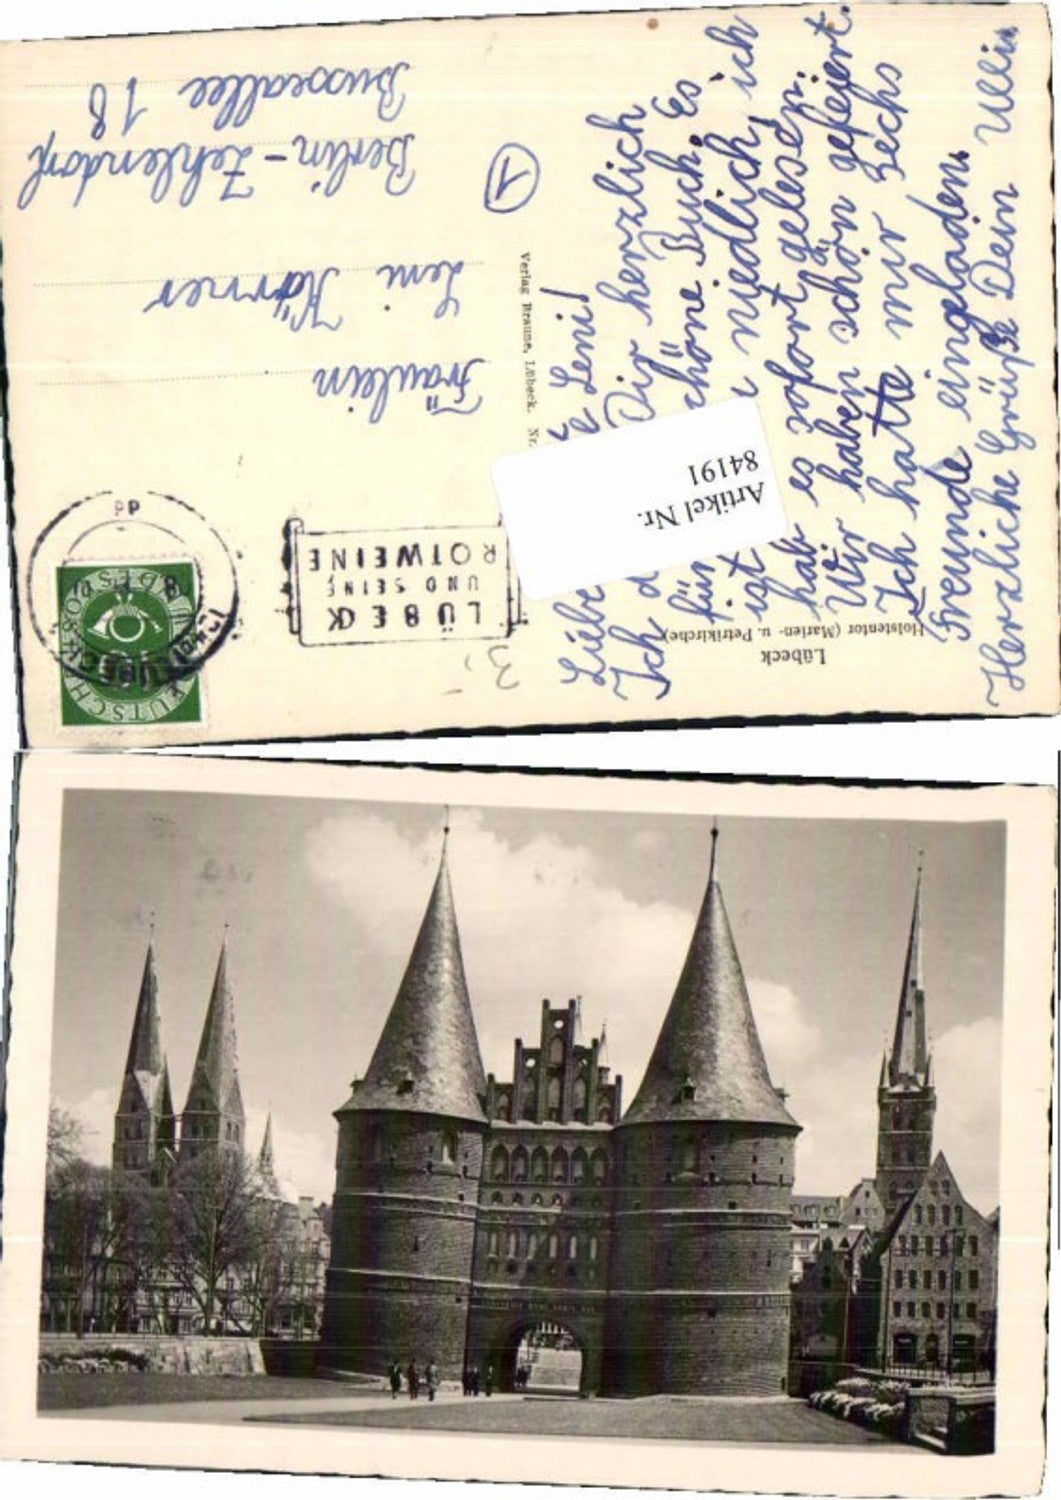 Liebe Leni!
Ich d Dir herzlich
für schöne Buch. Es
ist niedlich, ich
hab es sofort gelesen.
Wir haben schön gefeiert.
Ich hatte mir sechs
Freunde eingeladen.
Herzliche Grüße Dein Ulli
Lübeck
Holstentor (Marien- u. Petrikirche)
Artikel Nr.
84191
Verlag Braune, Lübeck. Nr.
1
LÜBECK
UND SEINE
ROTWEINE
DEUTSCHE BUNDESPOST
Fräulein
Leni Körner
Berlin-Zehlendorf
Busseallee 18